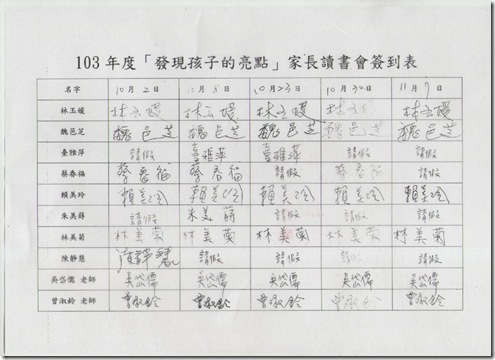 103 年度「發現孩子的亮點」家長讀書會簽到表
名字 10月2日 月8日 10月23日 10月30日 11月9日
林玉媛 林玉媛 林玉媛 林玉媛 林玉媛 林玉媛
魏邑芝 魏邑芝 魏邑芝 魏邑芝 魏邑芝 魏邑芝
臺雅萍 請假 臺雅萍 臺雅萍 請假 請假
蔡春福 蔡春福 蔡春福 請假 蔡春福 請假
賴美玲 賴美玲 賴美玲 賴美玲 賴美玲 賴美玲
朱美 請假 朱美 請假 請假 請假
林美菊 林美菊 林美菊 林美菊 林美菊 林美菊
陳靜慧 陳靜慧 請假 請假 請假 請假
吳岱儒 老師 吳岱儒 吳岱儒 吳岱儒 吳岱儒 吳岱儒
曾淑鈴 老師 曾淑鈴 曾淑鈴 曾淑鈴 曾淑鈴 曾淑鈴